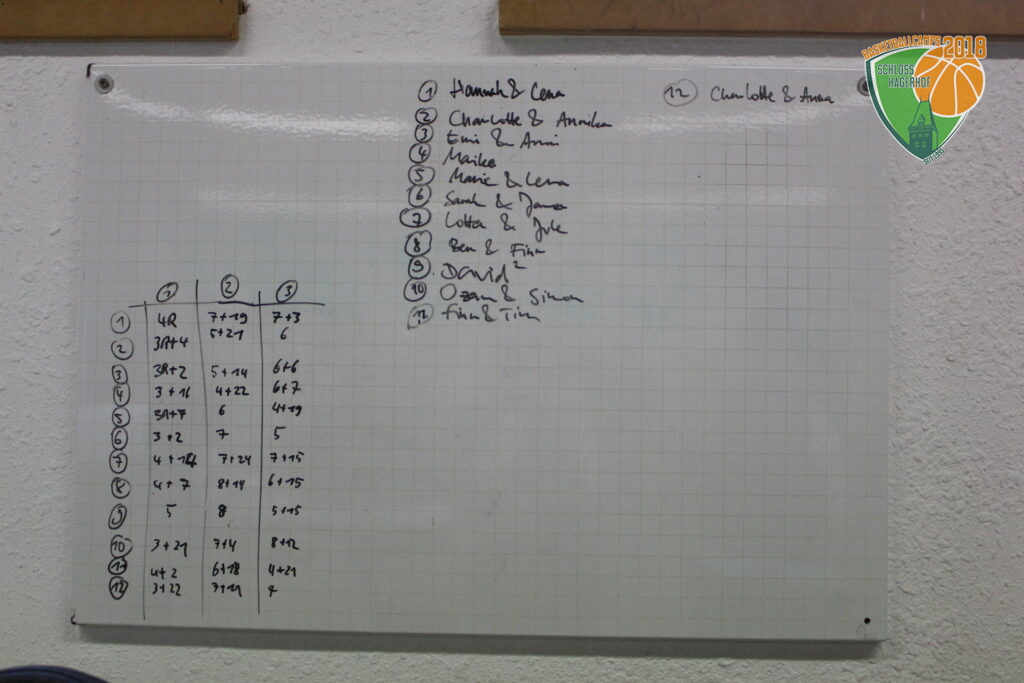 BASKETBALLCAMPS 2018
SCHLOSS
HAGERHOF
① Hannah & Lena
⑫ Charlotte & Anna
② Charlotte & Annika
③ Emi & Anni
④ Maike
⑤ Marie & Lena
⑥ Sarah & Jana
⑦ Lotta & Jule
⑧ Ben & Finn
⑨ David²
⑩ Ozan & Simon
⑪ Finn & Tim
① ② ③
① 4R 7+19 7+3
② 3R+4 5+21 6
③ 3R+2 5+14 6+6
④ 3+16 4+22 6+7
⑤ 3R+7 6 4+19
⑥ 3+2 7 5
⑦ 4+16 7+24 7+15
⑧ 4+7 8+14 6+15
⑨ 5 8 5+15
⑩ 3+21 7+4 8+12
⑪ 4+2 6+18 4+21
⑫ 3+22 7+21